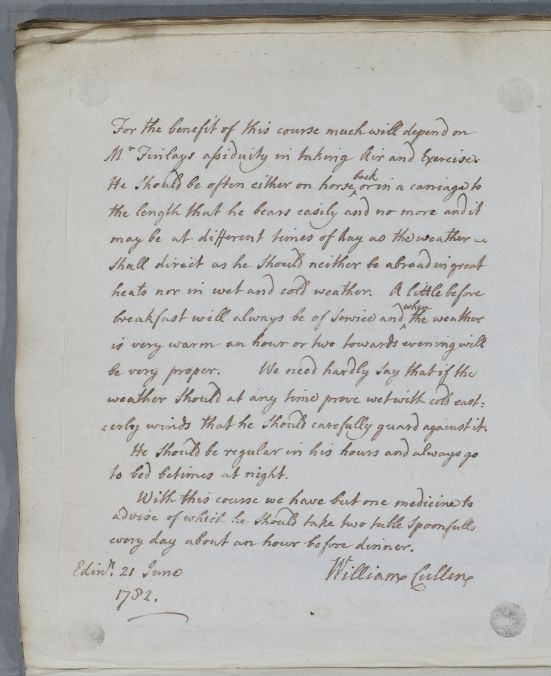 For the benefit of this course much will depend on
Mr Finlays assiduity in taking Air and Exercise.
He Should be often either on horse back or in a carriage to
the length that he bears easily and no more and it
may be at different times of day as the weather
Shall direct as he Should neither be abroad in great
heats nor in wet and cold weather. A little before
breakfast will always be of Service and when the weather
is very warm an hour or two towards evening will
be very proper. We need hardly Say that if the
weather Should at any time prove wet with cold east=
=erly winds that he Should carefully guard against it.
He Should be regular in his hours and always go
to bed betimes at night.
With this course we have but one medicine to
advise of which he Should take two table Spoonfulls
every day about an hour before dinner.
Edinr. 21 June William Cullen
1782.